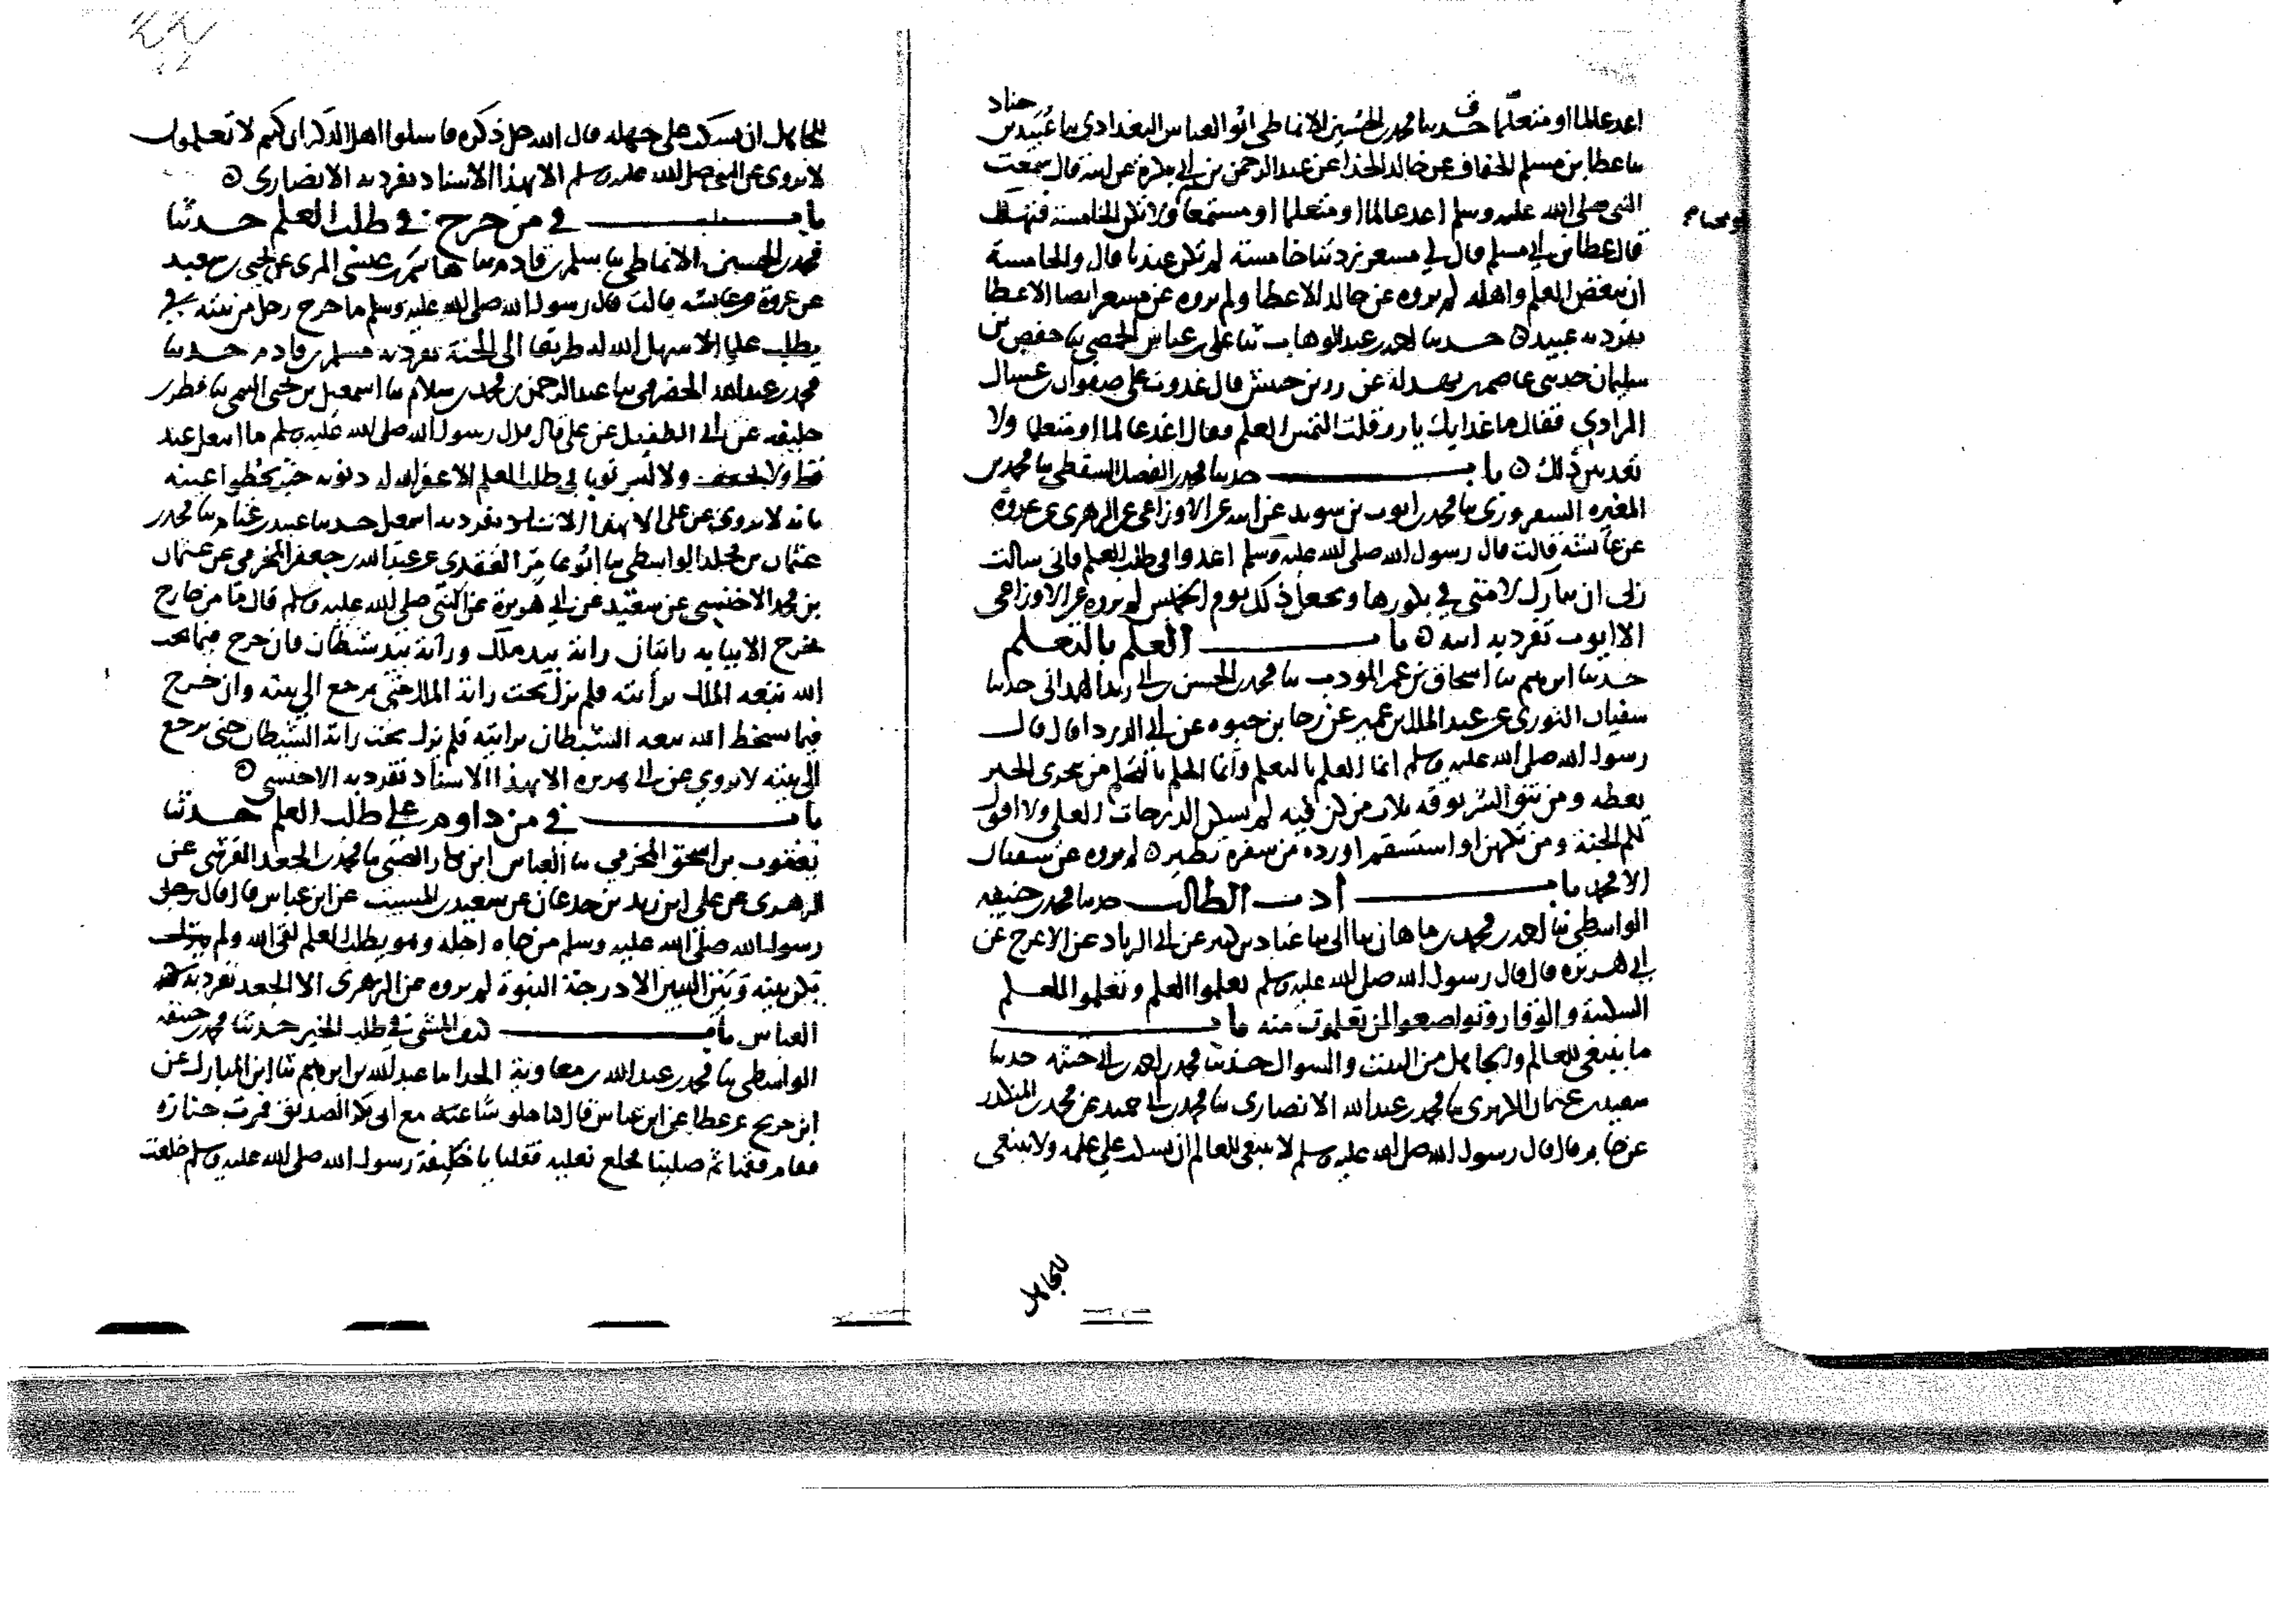 اغد عالما او متعلما حدثنا محمد بن الحسين الانماطي ابو العباس البغدادي ثنا عبيد بن جناد
ثنا عطا بن مسلم الخفاف عن خالد الحذا عن عبد الرحمن بن ابي بكرة عن ابيه قال سمعت
النبي صلى الله عليه وسلم اغد عالما او متعلما او مستمعا ولا تكن الخامسة فتهلك
قال عطا بن ابي مسلم قال لي مسعر زدتنا خامسة لم تكن عندنا قال والخامسة
ان تبغض العلم واهله لم يروه عن خالد الا عطا ولم يروه عن مسعر ايضا الا عطا
تفرد به عبيد ه حدثنا احمد بن عبد الوهاب ثنا علي بن عياش الحمصي ثنا حفص بن
سليمان حدثني عاصم بن بهدلة عن زر بن حبيش قال غدوت على صفوان بن عسال
المرادي فقال ما غدا بك يا زر قلت التمس العلم فقال اغد عالما او متعلما ولا
تغد بين ذلك ه باب حدثنا محمد بن الفضل السقطي ثنا محمد بن
المغيرة السهروزي ثنا محمد بن ايوب بن سويد عن ابيه عن الاوزاعي عن الزهري عن عروة
عن عائشة قالت قال رسول الله صلى الله عليه وسلم اغدوا في طلب العلم فاني سالت
ربي ان يبارك لامتي في بكورها ويجعل ذلك يوم الخميس لم يروه عن الاوزاعي
الا ايوب تفرد به ابنه ه باب العلم بالتعلم
حدثنا ابراهيم ثنا اسحاق بن عمر المودب ثنا محمد بن الحسن بن ابي يزيد الهمداني حدثنا
سفيان الثوري عن عبد الملك بن عمير عن رجا بن حيوه عن ابي الدردا قال قال
رسول الله صلى الله عليه وسلم انما العلم بالتعلم وانما الحلم بالتحلم من يتحرى الخير
يعطه ومن يتق الشر يوقه ثلاث من كن فيه لم يسكن الدرجات العلى ولا اقول
لكم الجنة من تكهن او استقسم او رده من سفره تطير ه لم يروه عن سفيان
الا محمد باب ادب الطالب حدثنا محمد بن حنيفه
الواسطي ثنا احمد بن محمد بن ماهان ثنا ابي ثنا عباد بن كثير عن ابي الزناد عن الاعرج عن
ابي هريرة قال قال رسول الله صلى الله عليه وسلم تعلموا العلم وتعلموا للعلم
السكينة والوقار وتواضعوا لمن تعلمون منه باب
ما ينبغي للعالم والجاهل من البث والسوال حدثنا محمد بن احمد بن ابي خيثمه حدثنا
سعيد بن عثمان الازدي ثنا محمد بن عبد الله الانصاري ثنا محمد بن ابي حميد عن محمد بن المنكدر
عن جابر قال قال رسول الله صلى الله عليه وسلم لا ينبغي للعالم ان يسكت على علمه ولا ينبغي
للجاهل
للجاهل ان يسكت على جهله قال الله جل ذكره فاسلوا اهل الذكر ان كنتم لا تعلمون
لا يروى عن النبي صلى الله عليه وسلم الا بهذا الاسناد تفرد به الانصاري ه
باب في من خرج في طلب العلم حدثنا
محمد بن الحسين الانماطي ثنا مسلم بن قادم ثنا هاشم بن عيسى المري عن يحيى بن سعيد
عن عروة عن عايشه قالت قال رسول الله صلى الله عليه وسلم ما خرج رجل من بيته
يطلب علما الا سهل الله له طريقا الى الجنة تفرد به مسلم بن قادم حدثنا
محمد بن عبد الله الحضرمي ثنا عبد الرحمن بن محمد بن سلام ثنا اسمعيل بن يحيى التيمي ثنا فطر بن
خليفه عن ابي الطفيل عن علي قال قال رسول الله صلى الله عليه وسلم ما انتعل عبد
قط ولا تخفف ولا لبس ثوبا في طلب العلم الا غفر الله له ذنوبه حيث يخطوا عتبة
بابه لا يروى عن علي الا بهذا الاسناد تفرد به اسمعيل حدثنا عبيد بن غنام ثنا محمد بن
عثمان بن مخلد الواسطي ثنا ابو عامر العقدي عن عبد الله بن جعفر المخرمي عن عثمان
بن محمد الاخنسي عن سعيد عن ابي هريرة عن النبي صلى الله عليه وسلم قال ما من خارج
يخرج الا ببابه رايتان راية بيد ملك وراية بيد شيطان فان خرج فيما يحب
الله تبعه الملك برايته فلم يزل تحت راية الملك حتى يرجع الى بيته وان خرج
فيما يسخط الله تبعه الشيطان برايته فلم يزل تحت راية الشيطان حتى يرجع
الى بيته لا يروى عن ابي هريرة الا بهذا الاسناد تفرد به الاخنسي ه
باب في من داوم على طلب العلم حدثنا
يعقوب بن اسحق المخرمي ثنا العباس بن بكار الضبي ثنا محمد بن الجعد القرشي عن
الزهري عن علي بن زيد بن جدعان عن سعيد بن المسيب عن ابن عباس قال قال
رسول الله صلى الله عليه وسلم من جاه اجله وهو يطلب العلم لقي الله ولم
يكن بينه وبين النبيين الا درجة النبوة لم يروه عن الزهري الا الجعد تفرد به
العباس باب كيف المشي في طلب الخير حدثنا محمد بن حنيفه
الواسطي ثنا محمد بن عبد الله بن معاوية الحذا ثنا عبد الله بن ابراهيم ثنا ابن المبارك عن
ابن جريج عن عطا عن ابن عباس قال مع ابي بكر الصديق فمرت جنازة
فقام فقمنا ثم صلينا فخلع نعليه فقلنا يا خليفة رسول الله صلى الله عليه وسلم خلعت